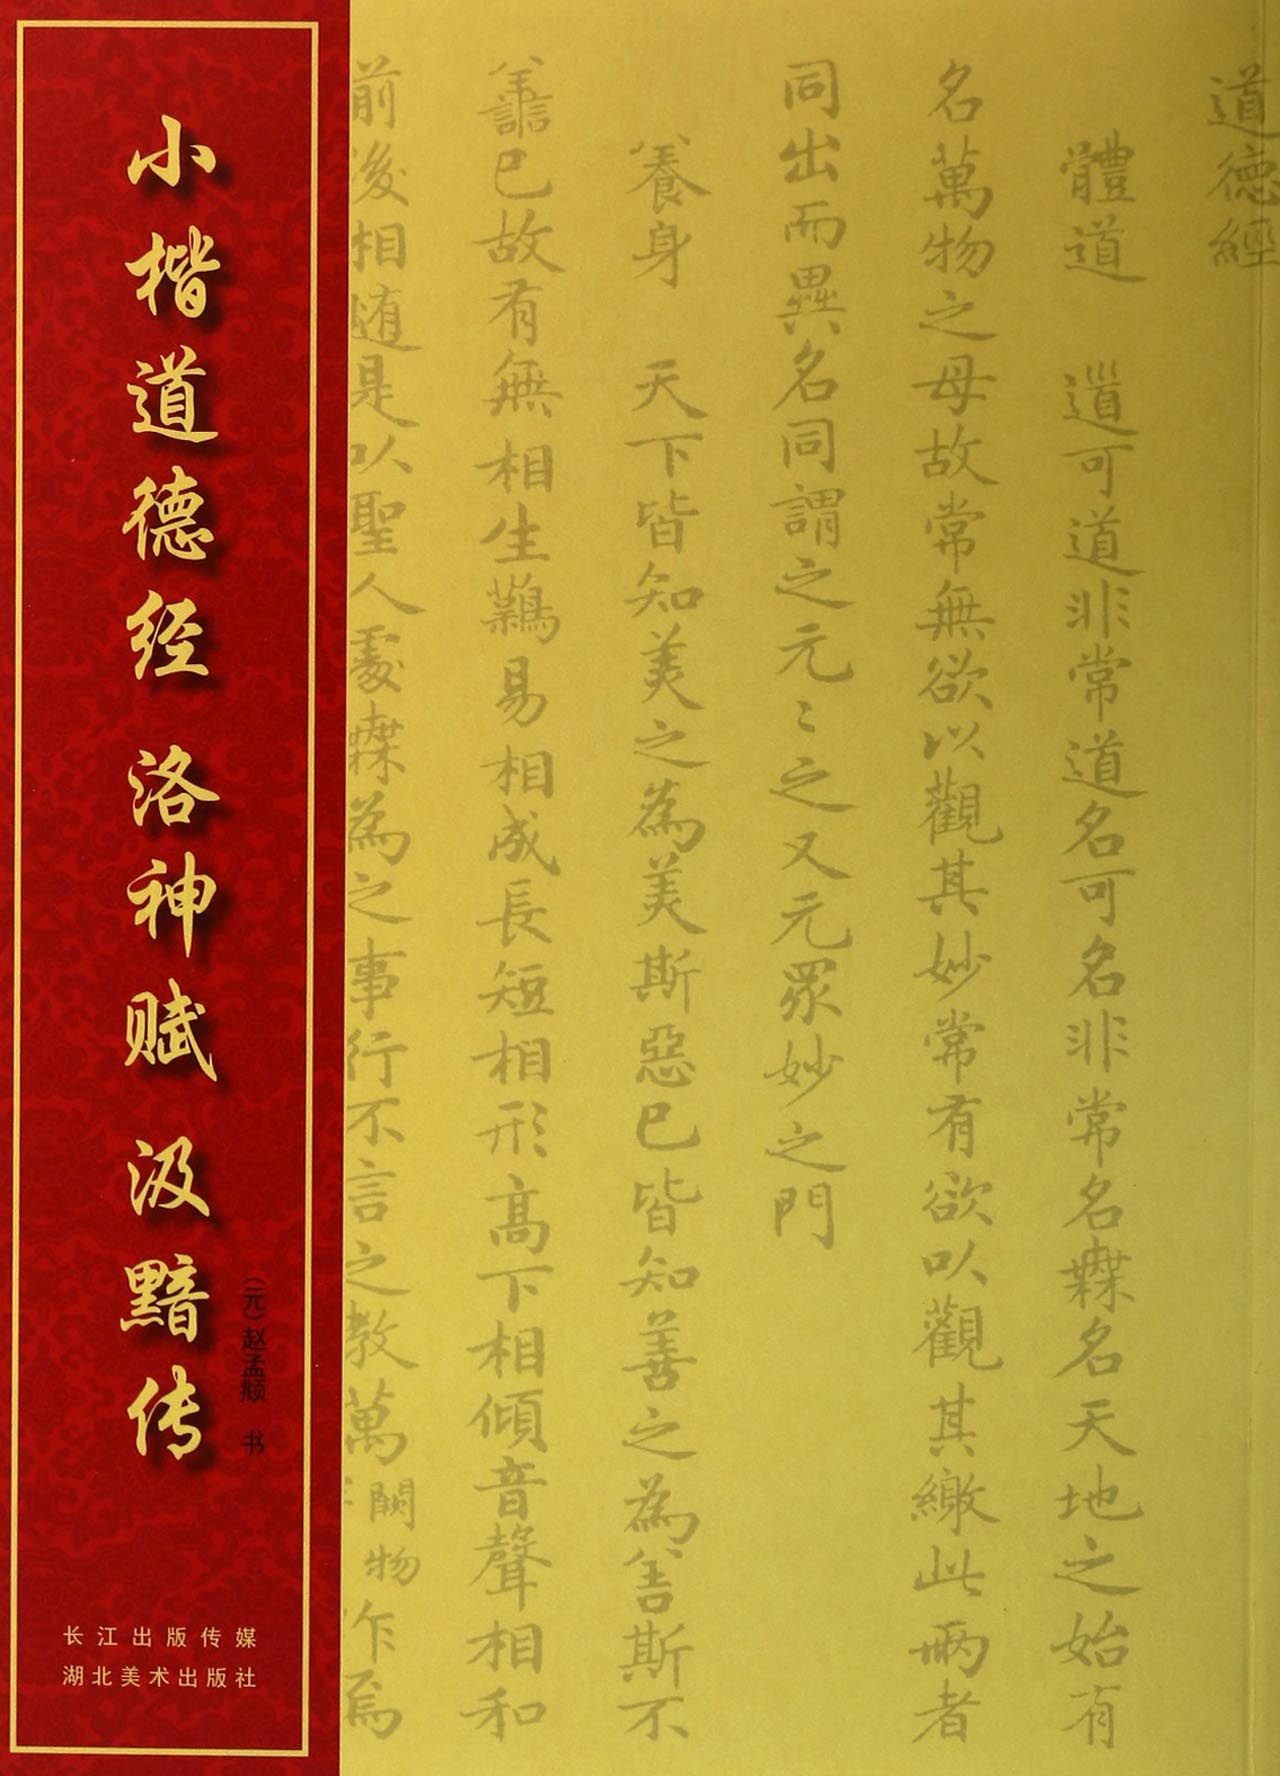 小楷道德经 洛神赋 汲黯传
（元）赵孟頫 书
长江出版传媒
湖北美术出版社
道德經
體道 道可道非常道名可名非常名無名天地之始有
名萬物之母故常無欲以觀其妙常有欲以觀其繳此兩者
同出而異名同謂之元〻之又元眾妙之門
養身 天下皆知美之為美斯惡已皆知善之為善斯不
善已故有無相生難易相成長短相形高下相傾音聲相和
前後相隨是以聖人處無為之事行不言之教萬物作焉
闕物